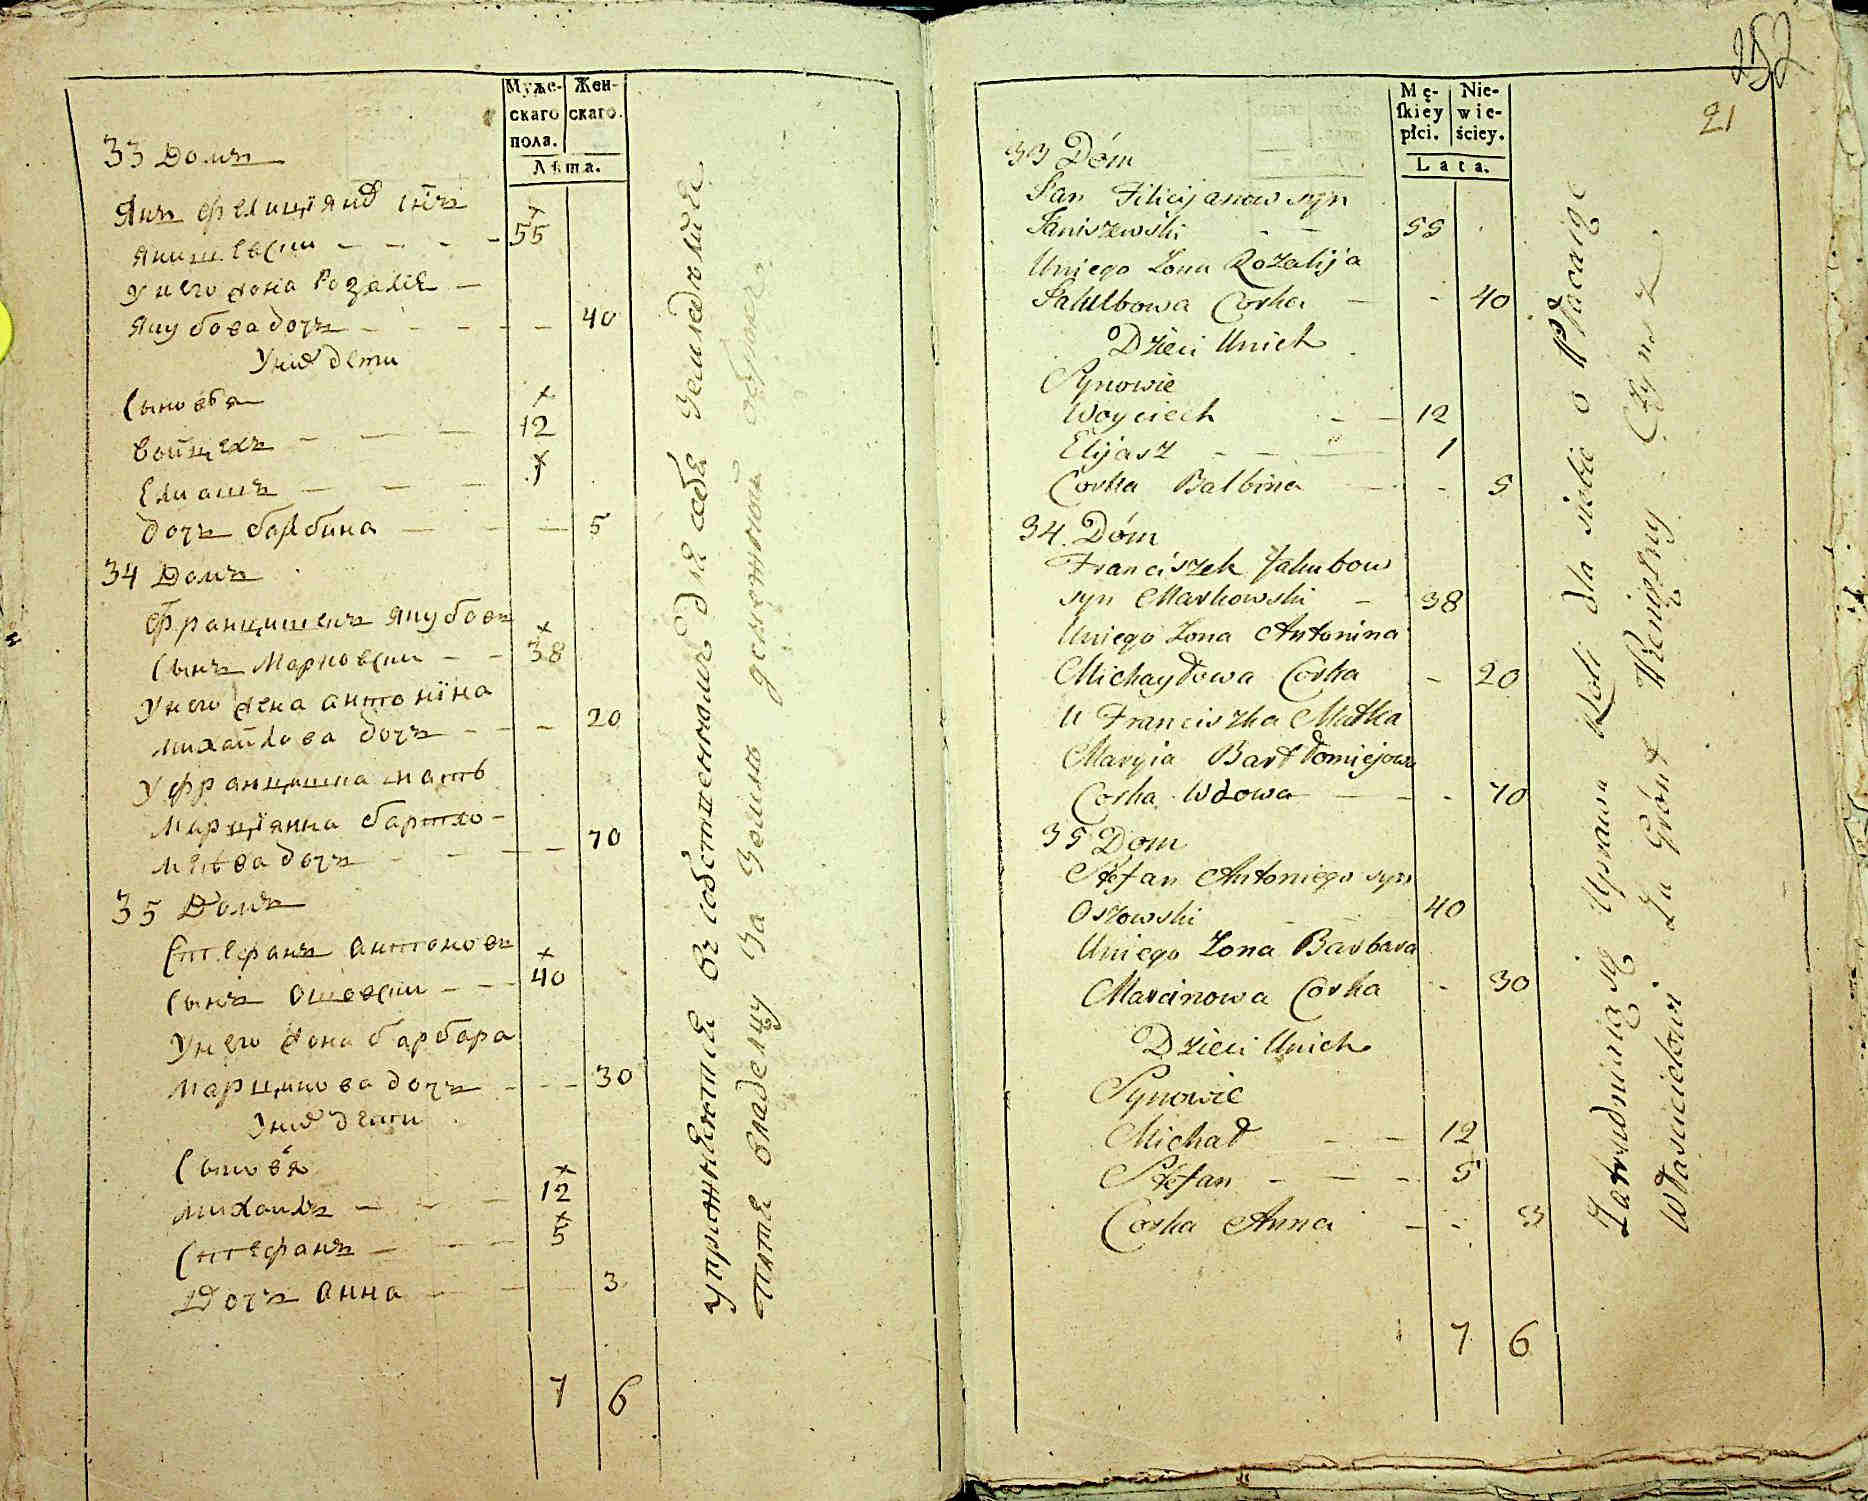 Муже-
скаго
пола.
Жен-
скаго.
Лѣта.
33 Домъ
Янъ Фелиціянов сынъ
Янишевски 55
У него жона Розалія
Якубова дочъ 40
У них дети
Сыновя
Войцехъ 12
Елиашъ 1
дочъ балбина 5
34 Домъ
Францишекъ Якубовъ
сынъ Марковски 38
У него жена антонина
михайлова дочъ 20
У францишка мать
Марціянна бартло-
меева дочъ 70
35 Домъ
Стефанъ антоновъ
сынъ ошовски 40
У него жона барбара
марцинова дочъ 30
У них дети
Сыновя
михаилъ 12
Стефанъ 5
Дочъ анна 3
7 6
упражняются въ собственномъ для себя земледѣлии
платя владелцу за землю денежной оброкъ
252
21
Mę-
skiey
płci.
Nie-
wie-
ściey.
Lata.
33 Dóm
Jan Filicijanow syn
Janiszewski 55
Uniego Żona Rozalija
Jakubowa Corka 40
Dzieci Unich
Synowie
Woyciech 12
Elijasz 1
Corka Balbina 5
34 Dóm
Franciszek Jakubow
syn Markowski 38
Uniego Żona Antonina
Michayłowa Corka 20
U Franciszka Matka
Maryia Bartłomiejowa
Corka Wdowa 70
35 Dom
Stefan Antoniego syn
Oszowski 40
Uniego Żona Barbara
Marcinowa Corka 30
Dzieci Unich
Synowie
Michał 12
Stefan 5
Corka Anna 3
7 6
Zatrudniaią się Uprawą Roli dla siebie o Płacaiąc
Włascicielowi za Grónt Pieniężny Czynsz.